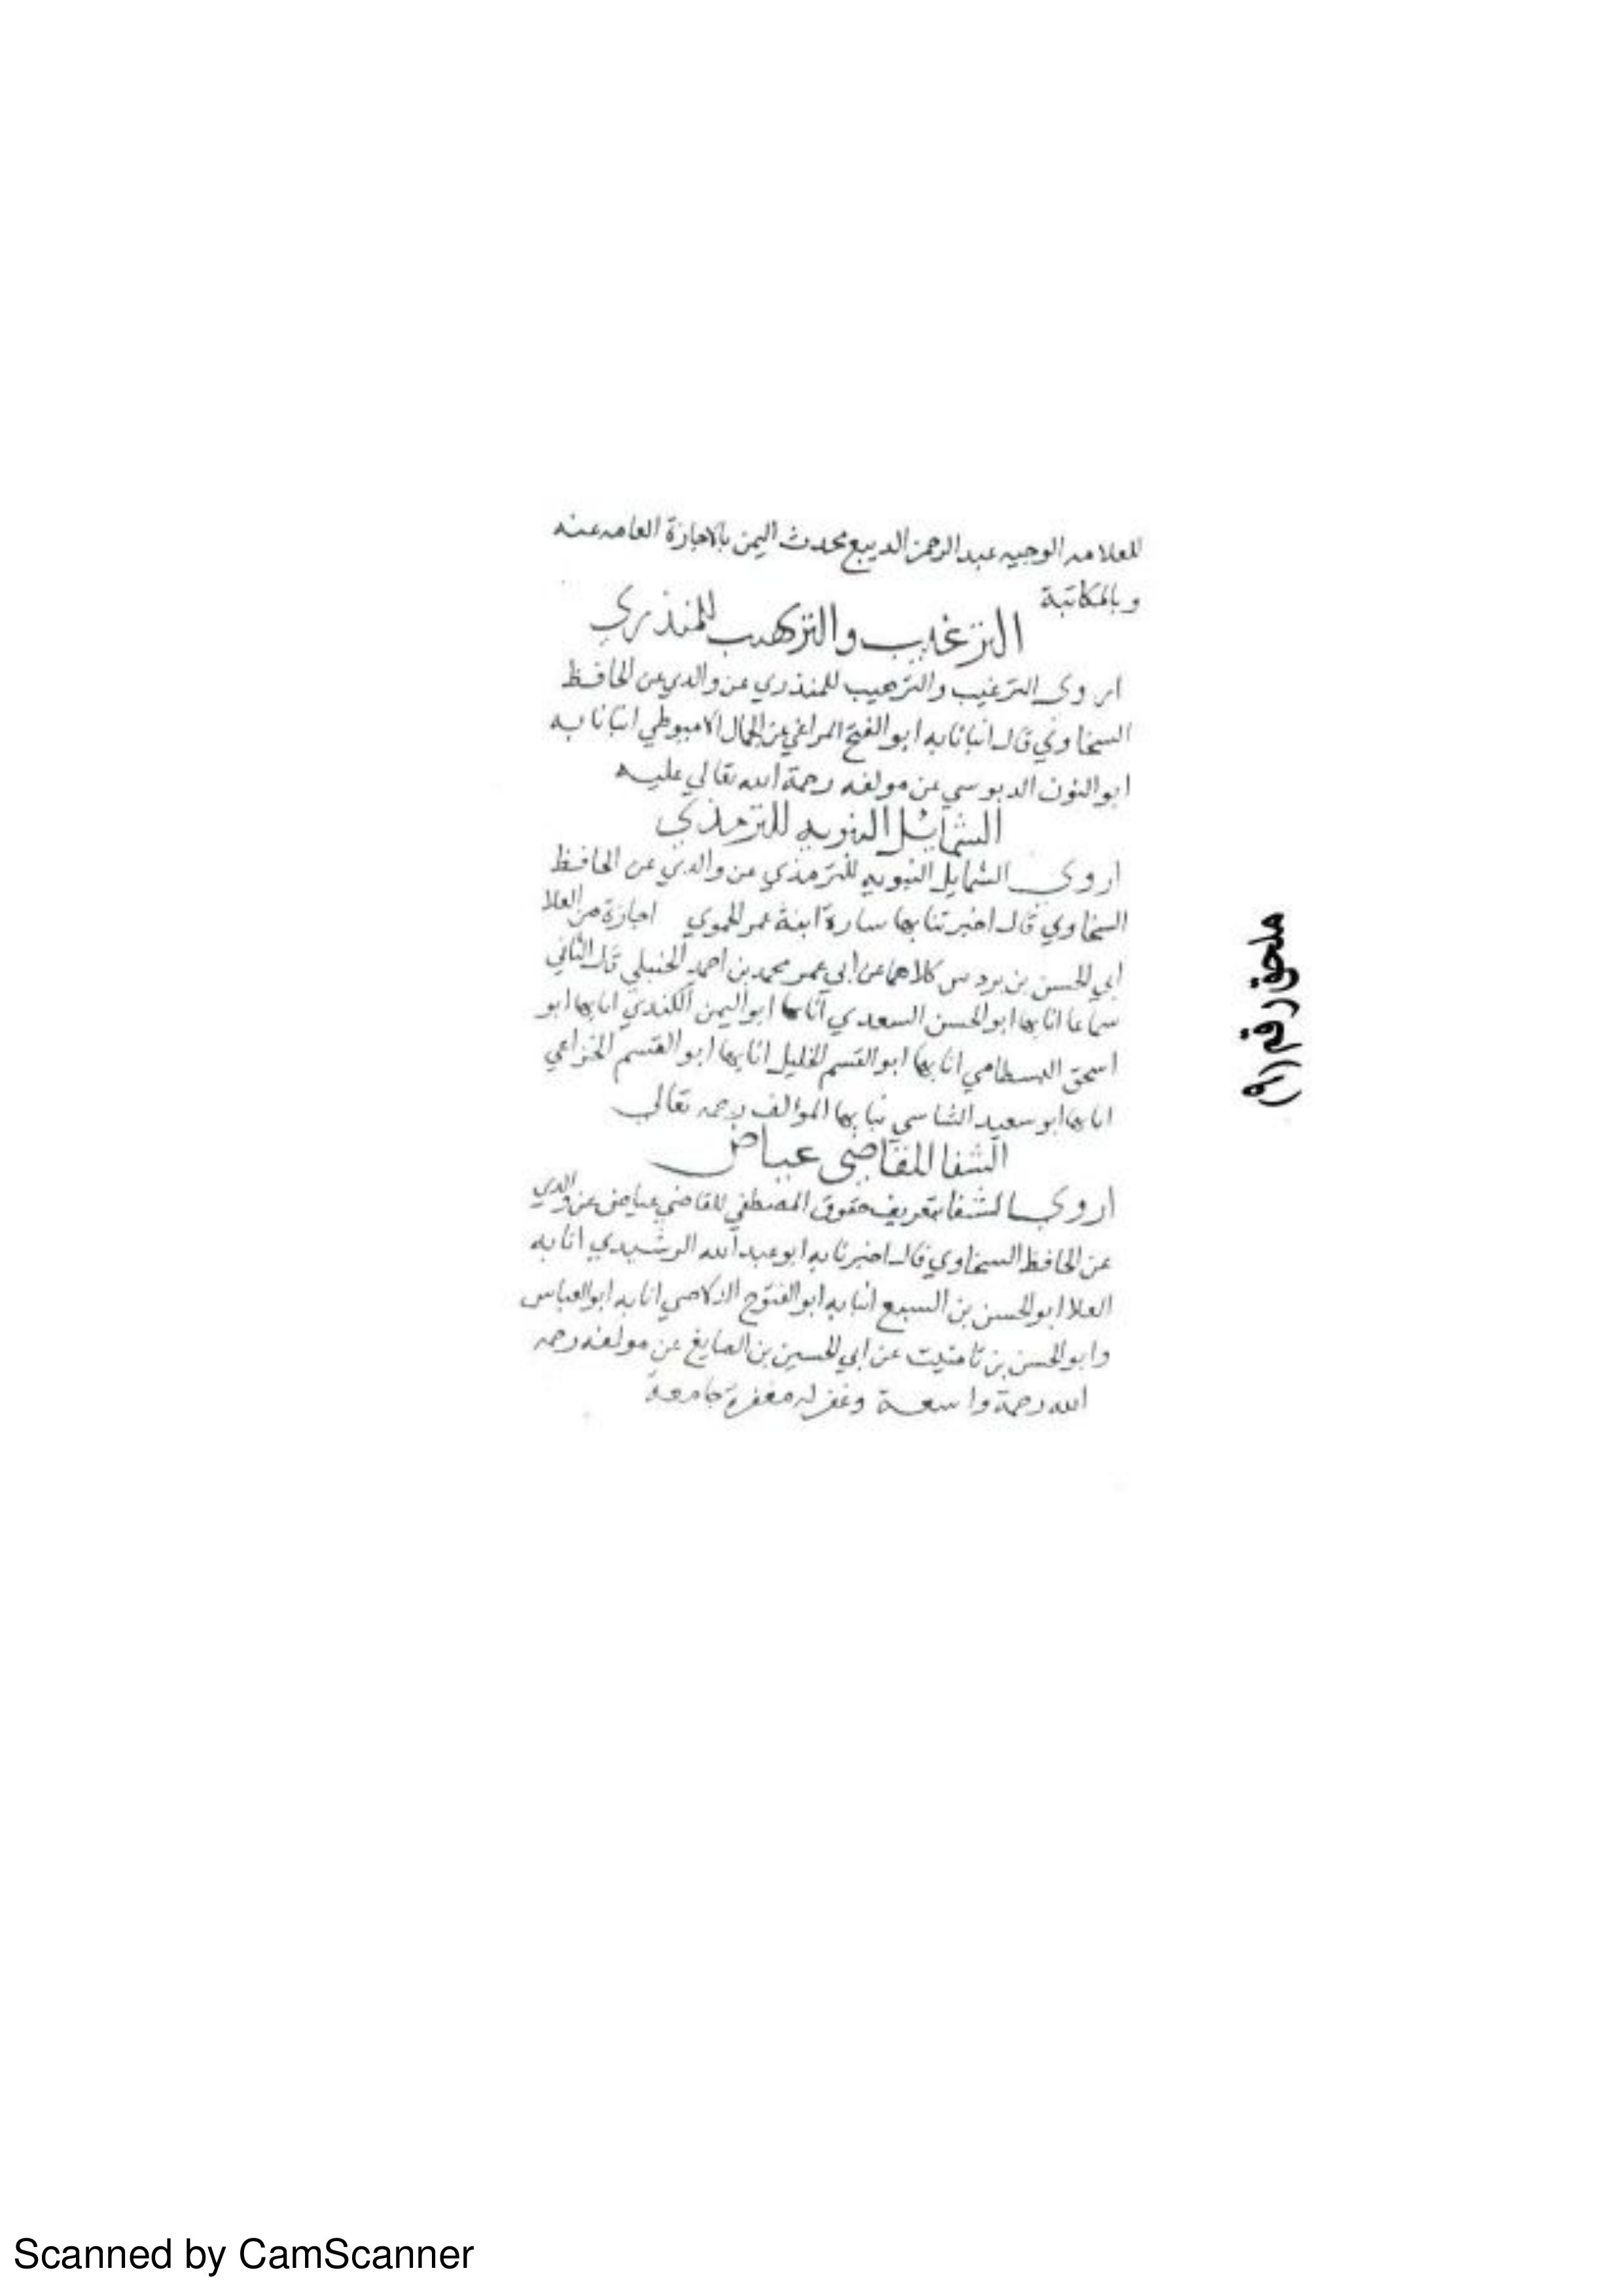 للعلامه الوجيه عبد الرحمن الديبع محدث اليمن بالاجازة العامه عنه
وبالمكاتبة
الترغيب والترهيب للمنذري
اروي الترغيب والترهيب للمنذري عن والدي عن الحافظ
السخاوي قال انبانا به ابو الفتح المراغي عن الجمال الاميوطي انبانا به
ابو النون الدبوسي عن مولفه رحمة الله تعالي عليه
الشمائل النبويه للترمذي
اروي الشمايل النبويه للترمذي عن والدي عن الحافظ
السخاوي قال اخبرتنا بها سارة ابنة عمر الحموي اجازة من العلا
ابي الحسن بن بردس كلاهما عن ابي عمر محمد بن احمد الحنبلي قال الثاني
سماعا انا بها ابو الحسن السعدي انا بها ابو اليمن الكندي انا بها ابو
اسحق البسطامي انا بها ابو القسم الخليل انا بها ابو القسم الخزاعي
انا بها ابو سعيد الشاسي نبا بها الموالف رحمه تعالي
الشفا للقاضي عياض
اروي الشفا بتعريف حقوق المصطفي للقاضي عياض عن والدي
عن الحافظ السخاوي قال اخبرنا به ابو عبد الله الرشيدي انا به
العلا ابو الحسن بن السبع انبا به ابو الفتوح الدلاصي انا به ابو العباس
وابو الحسن بن تامتيت عن ابي الحسين بن الصايغ عن مولفه رحمه
الله رحمة واسعة وغفر له مغفرة جامعة
ملحق رقم (٩)
Scanned by CamScanner